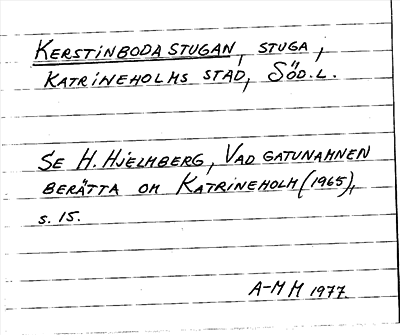 KERSTINBODASTUGAN, STUGA,
KATRINEHOLMS STAD, SÖD.L.
SE H. HJELMBERG, VAD GATUNAMNEN
BERÄTTA OM KATRINEHOLM (1965),
s. 15.
A-MM 1977